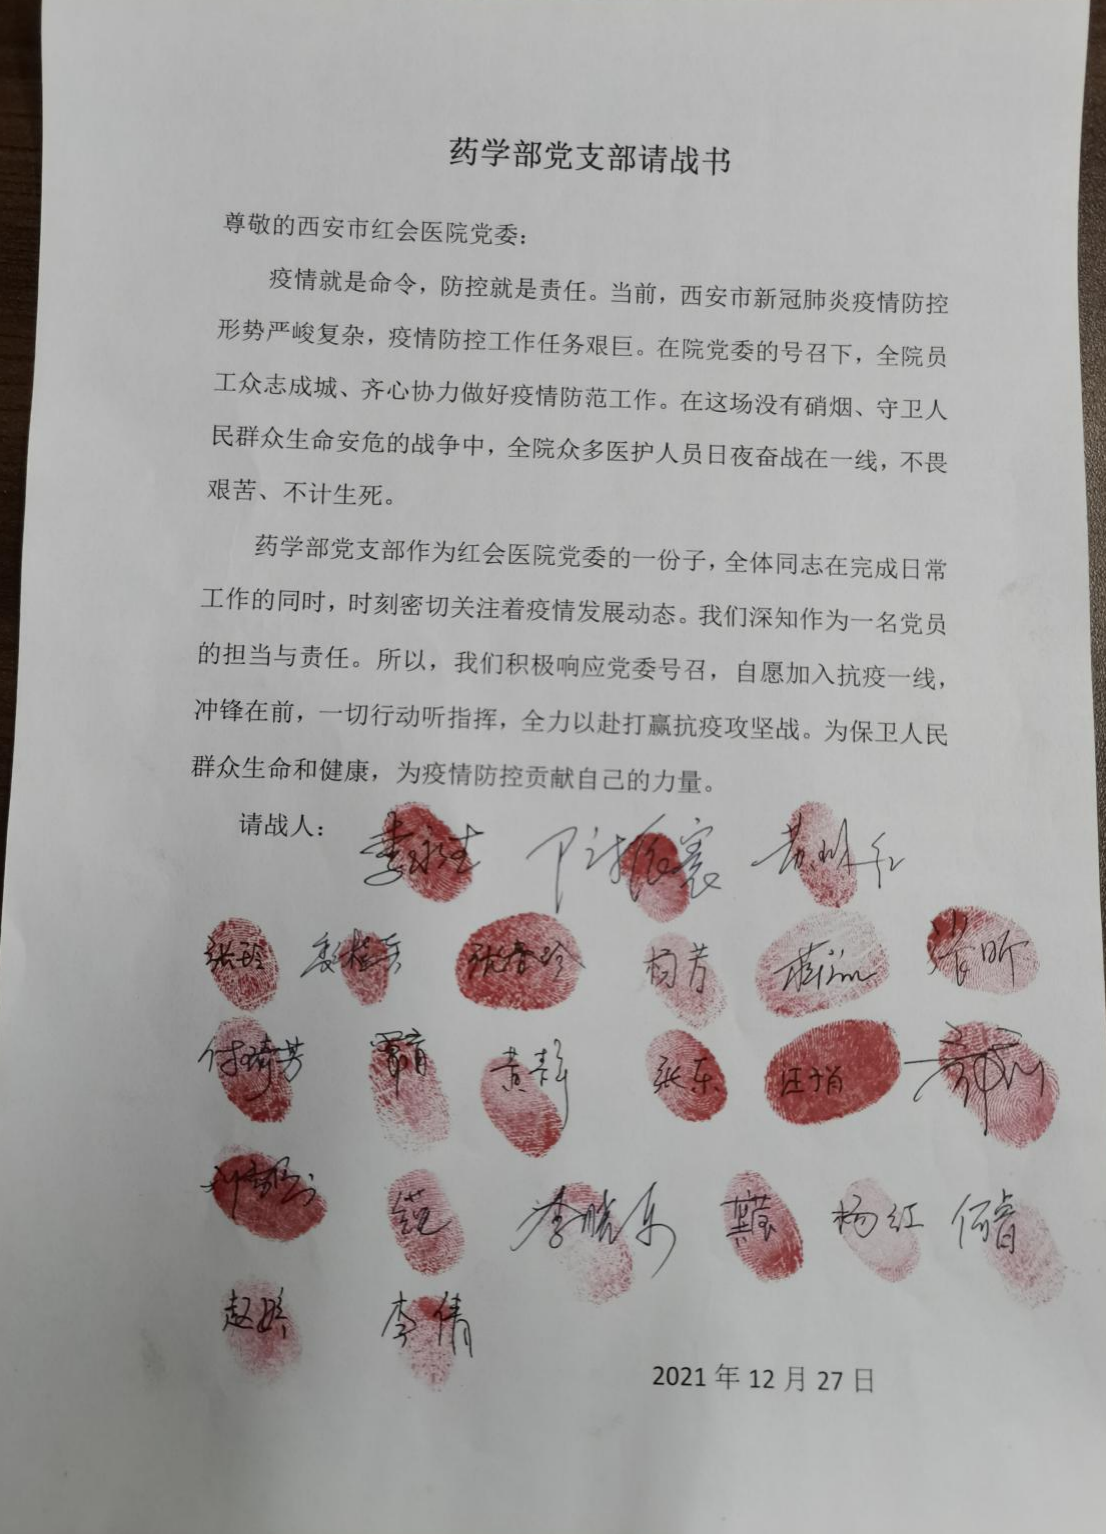 药学部党支部请战书
尊敬的西安市红会医院党委：
疫情就是命令，防控就是责任。当前，西安市新冠肺炎疫情防控
形势严峻复杂，疫情防控工作任务艰巨。在院党委的号召下，全院员
工众志成城、齐心协力做好疫情防范工作。在这场没有硝烟、守卫人
民群众生命安危的战争中，全院众多医护人员日夜奋战在一线，不畏
艰苦、不计生死。
药学部党支部作为红会医院党委的一份子，全体同志在完成日常
工作的同时，时刻密切关注着疫情发展动态。我们深知作为一名党员
的担当与责任。所以，我们积极响应党委号召，自愿加入抗疫一线，
冲锋在前，一切行动听指挥，全力以赴打赢抗疫攻坚战。为保卫人民
群众生命和健康，为疫情防控贡献自己的力量。
请战人：
张玲 张春玲 杨芳
付琦芳 黄静 张东
李晓东 杨红 何睿
赵婷 李倩
2021 年 12 月 27 日